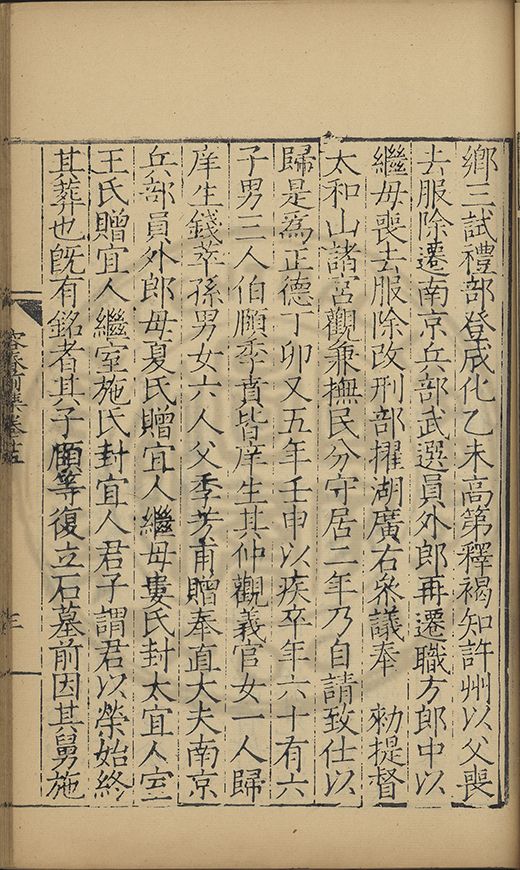 鄉三試禮部登成化乙未高第釋褐知許州以父喪
去服除遷南京兵部武選員外郎再遷職方郎中以
繼母喪去服除改刑部擢湖廣右叅議奉　勑提督
太和山諸宮觀兼撫民分守居二年乃自請致仕以
歸是爲正德丁卯又五年壬申以疾卒年六十有六
子男三人伯頤季賁皆庠生其仲觀義官女一人歸
庠生錢萃孫男女六人父季芳甫贈奉直大夫南京
兵部員外郎母夏氏贈宜人繼母婁氏封太宜人室
王氏贈宜人繼室施氏封宜人君子謂君以榮始終
其葬也旣有銘者其子頤等復立石墓前因其舅施
容春前集卷十五
三